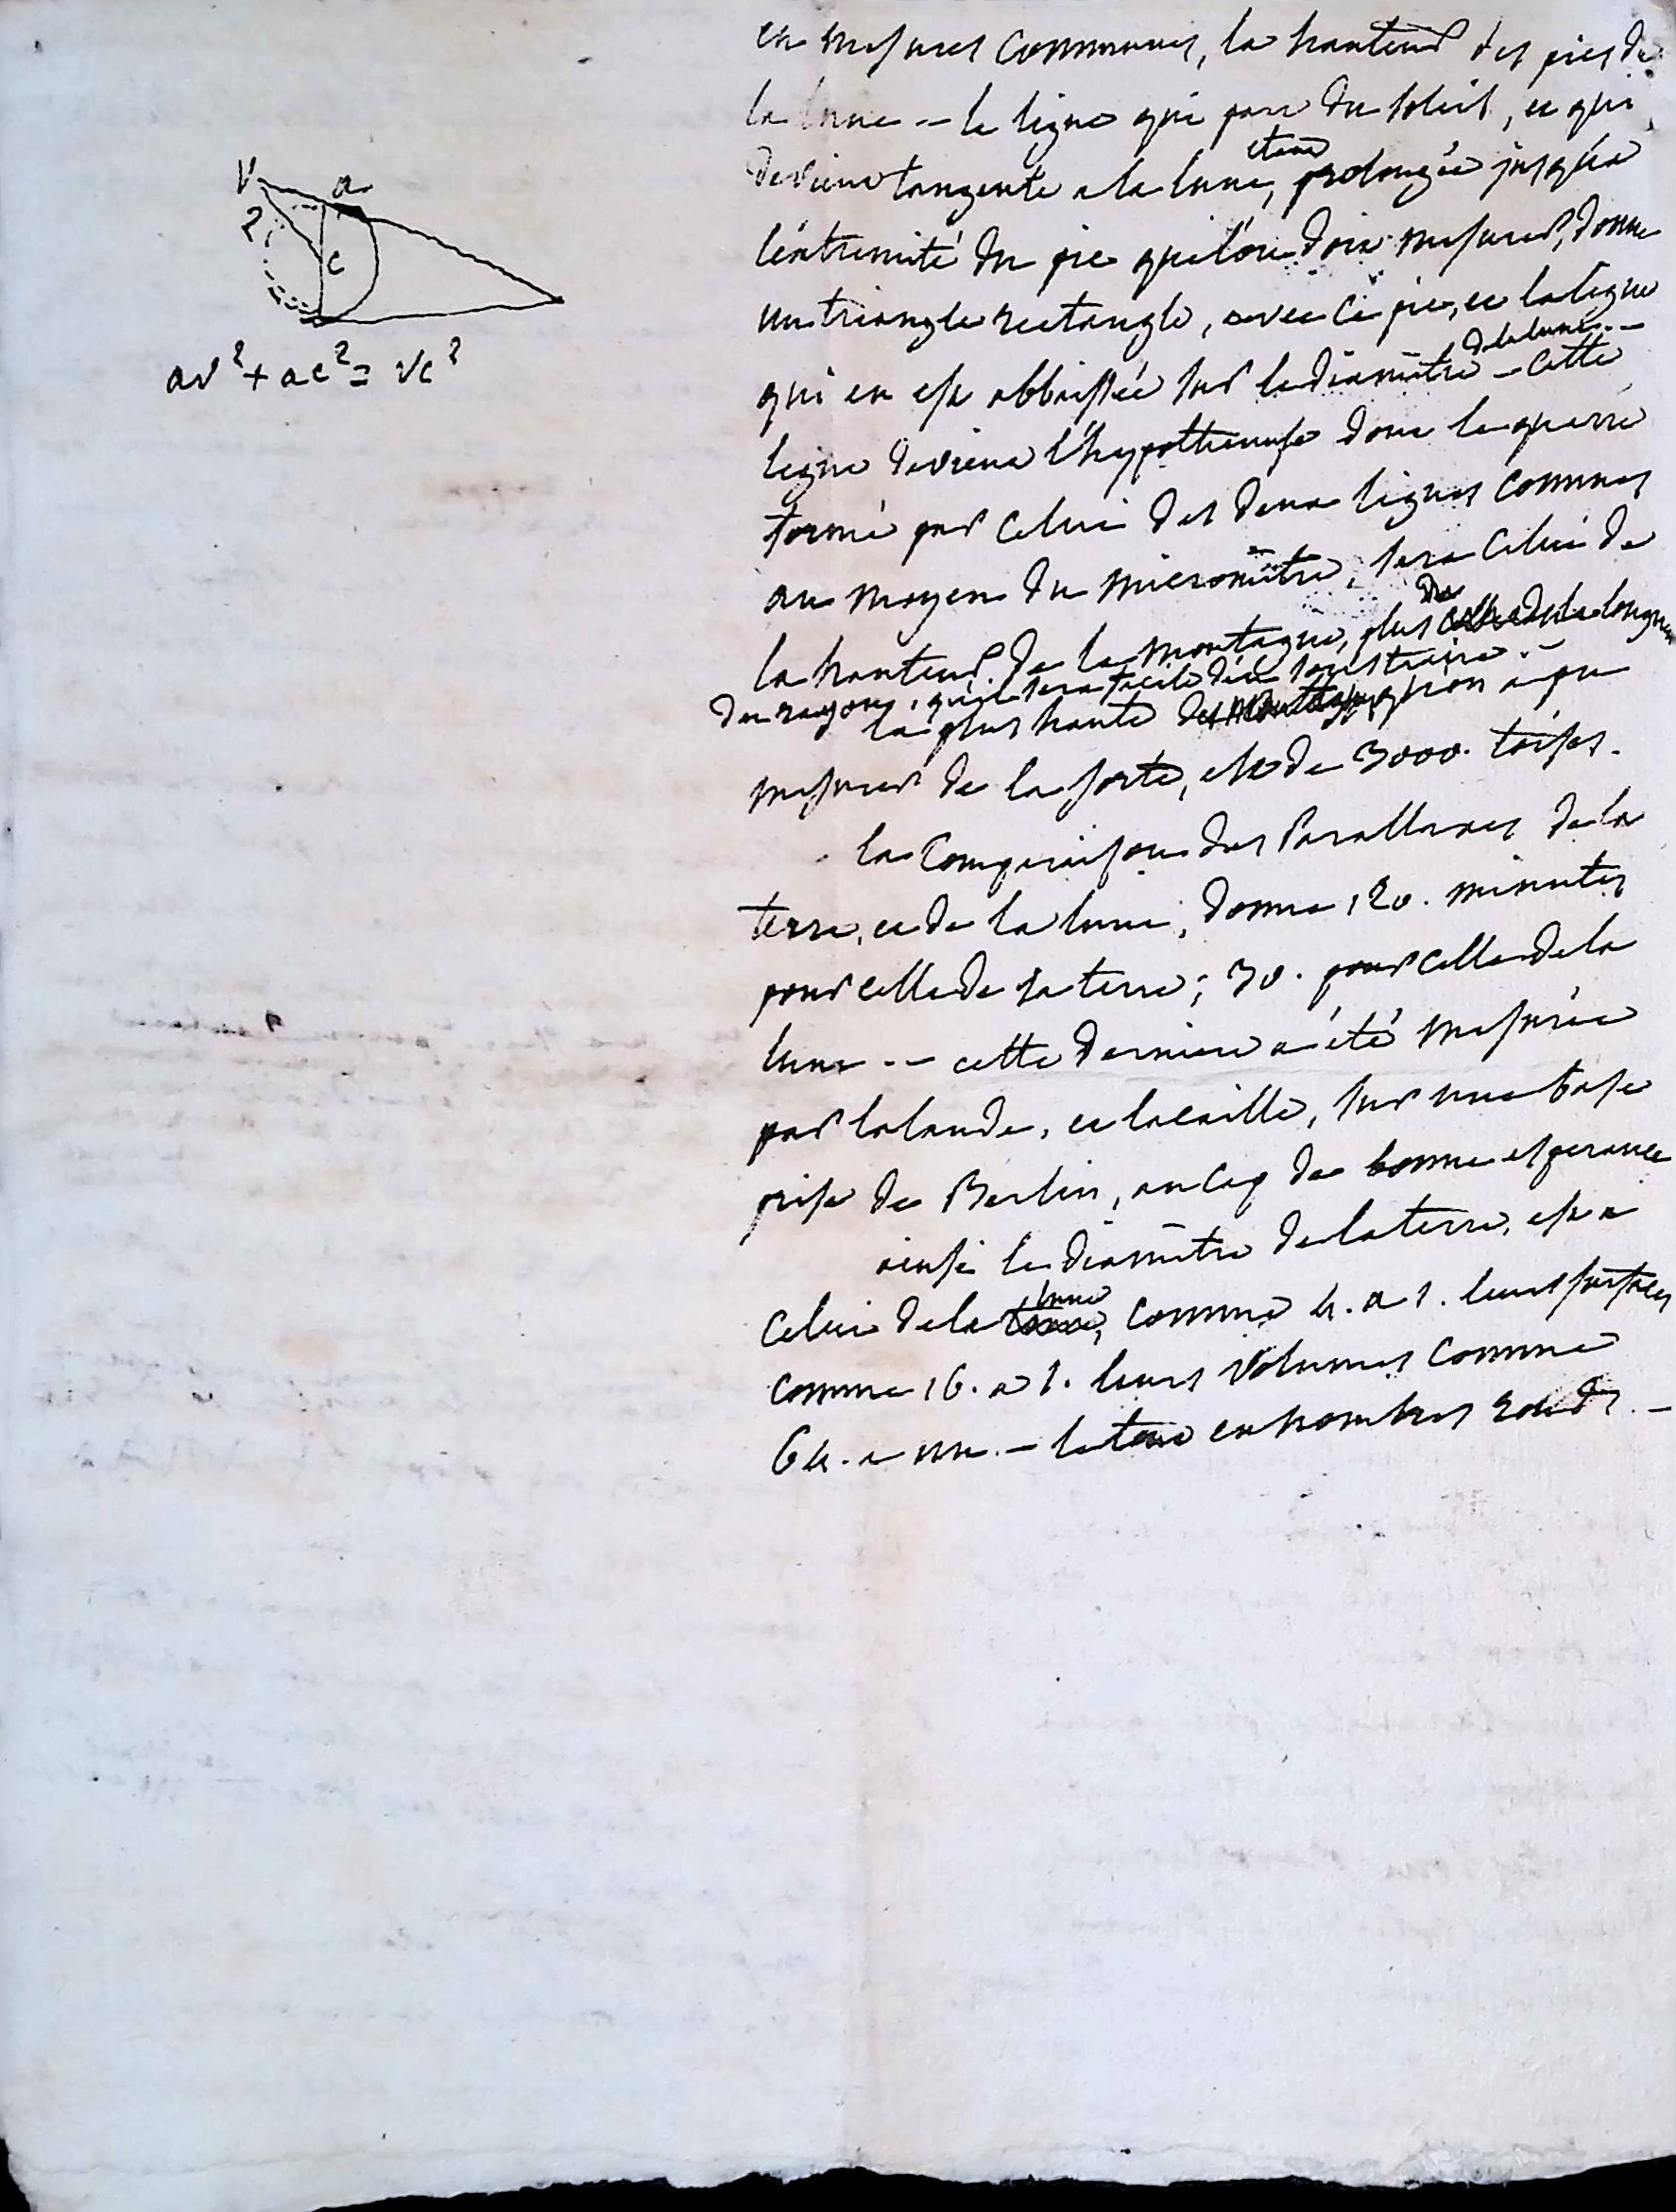 V a
2
c
av² + ac² = vc²
en mesures communes, la hauteur des pics de
la lune -- la ligne qui part du soleil, et qui
devient tangente a la lune, etant prolongée jusqu'a
l'extremité du pic que l'on doit mesurer, donne
un triangle rectangle, avec ce pic, et la ligne
qui en est abbaissée sur le diamêtre de la lune -- cette
ligne devient l'hypothenuse dont le quarré
formé par celui des deux lignes connues
au moyen du micromêtre, sera celui de
la hauteur de la montagne, plus de la longueur
du rayon, qu'il sera facile d'en soustraire. -
la plus haute des montagnes qu'on a pu
mesurer de la sorte, est de 3000. toises.
la comparaison des Parallaxes de la
terre, et de la lune, donne 120. minutes
pour celle de la terre; 30. pour celle de la
lune -- cette derniere a été mesurée
par lalande, et lacaille, sur une base
prise de Berlin, au cap de bonne esperance
ainsi le diamêtre de la terre, est a
celui de la lune, comme 4. a 1. leurs surfaces
comme 16. a 1. leurs volumes comme
64. a un. - le tout en nombres ronds. -